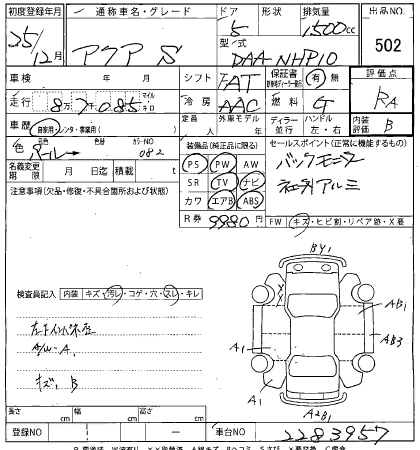 初度登録年月 通称車名・グレード ドア 形状 排気量 出品NO.
25/12月 アクア S 5 1500cc 502
型式 DAA-NHP10
車検 年 月 シフト FAT 保証書 有 無 評価点
走行 8万7千085 マイル キロ 冷房 AAC 燃料 G RA
車歴 自家用・レンタ・事業用( ) 定員 人 外車モデル 年 ディーラー 並行 ハンドル 左・右 内装評価 B
色 元色 パール 色替 カラーNO 082
装備品(純正品に限る) セールスポイント(正常に機能するもの)
名義変更期限 月 日迄 積載 t
PS PW AW バックモニター
注意事項(欠品・修復・不具合箇所および状態)
SR TV ナビ 社外アルミ
カワ エアB ABS
R券 9980円
FW キズ・ヒビ割・リペア跡・X要
検査員記入 内装 キズ・汚レ・コゲ・穴・スレ・キレ
BY1
A1
AB1
AB3
A1
A1
A2B1
A/W-A.
キズ, B
長さ cm 幅 cm 高さ cm
登録NO 車台NO 2283957